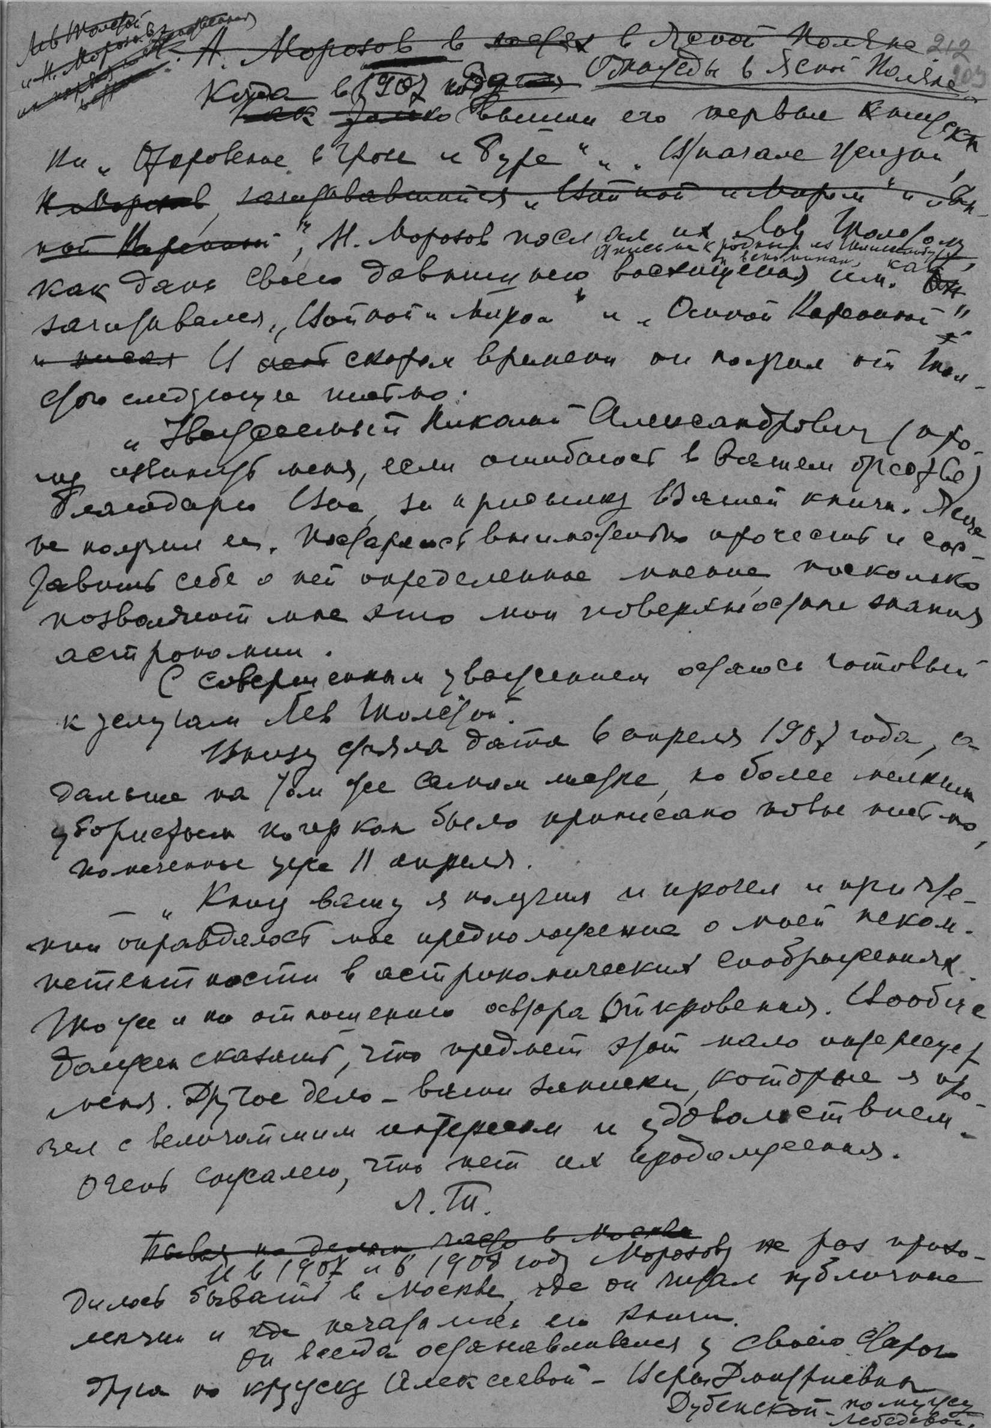 Лев Толстой
и Н. Морозов
Н. А. Морозов в гостях в Ясной Поляне
212
Однажды в Ясной Поляне
Когда в 1907 году
Как только вышли его первые книжки
ки „Откровение в грозе и буре“ и „В начале жизни“,
Н. Морозов, зачитывавшийся „Войной и Миром“ и „Ан-
ной Карениной“, Н. Морозов послал их Льву Толстому
как дань своего давнишнего восхищения им. Он
зачитывался „Войной и Миром“ и „Анной Карениной“
и писал В скором времени он получил от Тол-
стого следующее письмо:
„Уважаемый Николай Александрович (про-
шу извинить меня, если ошибаюсь в Вашем отчестве)
Благодарю Вас за присылку Вашей книги. Я еще
не получил ее. Постараюсь внимательно прочесть и сос-
тавить себе о ней определенное мнение, поскольку
позволяют мне это мои поверхностные знания
астрономии.
С совершенным уважением остаюсь готовый
к услугам Лев Толстой.
Внизу стояла дата 6 апреля 1907 года, а
дальше на том же самом листке, но более мелким
убористым почерком было приписано новое письмо,
помеченное уже 11 апреля.
— „Книгу вашу я получил и прочел и при чте-
нии оправдалось мое предположение о моей неком-
петентности в астрономических соображениях.
То же и по отношению автора Откровения. Вообще
должен сказать, что предмет этот мало интересует
меня. Другое дело – ваши записки, которые я про-
чел с величайшим интересом и удовольствием.
Очень сожалею, что нет их продолжения.
Л. Т.
Бывая по делам часто в Москве
И в 1907 и в 1908 году Морозову не раз прихо-
дилось бывать в Москве, где он читал публичные
лекции и где печатались его книги.
Он всегда останавливался у своего старого
друга по кружку Алексеевой – Веры Дмитриевны
Дубенской – по мужу
Лебедевой.